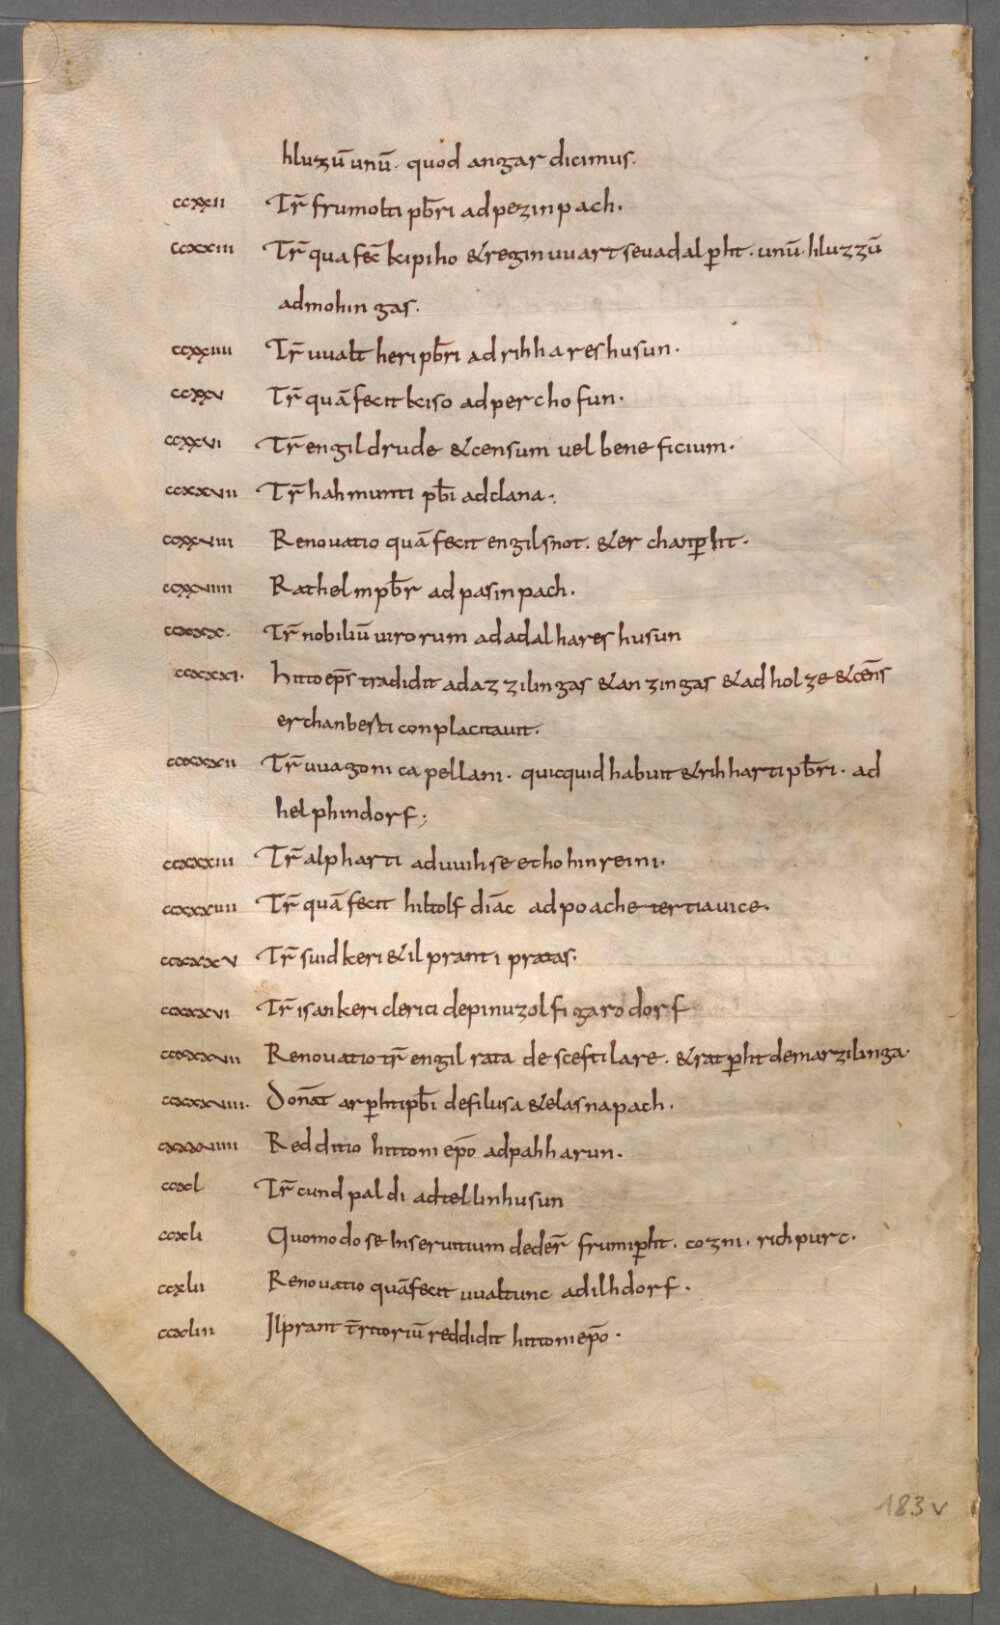 hluzzū unū· quod angar dicimus·
ccxxii Tr̄ frumolti pb̄ri ad pezinpach·
ccxxiii Tr̄ qua fec̄ kipiho & reginuuart seu adalꝑht· unū· hluzzū
ad mohingas·
ccxxiiii Tr̄ uualtheri pb̄ri ad rihhareshusun·
ccxxv Tr̄ quā fecit kiso ad perchofun·
ccxxvi Tr̄ engildrude & censum uel beneficium·
ccxxvii Tr̄ hahmunti pb̄i ad clana·,
ccxxviii Renouatio quā fecit engilsnot· & erchanꝑht·
ccxxviiii Rathelm pb̄r ad pasinpach·
ccxxx· Tr̄ nobiliū uirorum ad adalhareshusun
ccxxxi· hitto ep̄s tradidit ad azzilingas & anzingas & ad holze & cēns
erchanbesti conplacitauit·
ccxxxii Tr̄ uuagoni capellani· quicquid habuit & rihharti pb̄ri· ad
helphindorf;
ccxxxiii Tr̄ alpharti ad uuihse et hohinreini·
ccxxxiiii Tr̄ quā fecit hiltolf diāc ad poache tertia uice·
ccxxxv Tr̄ suidkeri & ilpranti pratas·
ccxxxvi Tr̄ isankeri clerici de pinuzolfigarodorf
ccxxxvii Renouatio tr̄ engilrata de sceftilare· & ratꝑht de marzilinga·
ccxxxviii· Donāt arꝑhti pb̄i de filusa & elasnapach·
cxxxxviiii Redditio hittoni ep̄o ad pahharun·
ccxl Tr̄ cundpaldi ad tellinhusun
ccxli Quomodo se in seruitium deder̄ frumiꝑht· cozni· richpurc·
ccxlii Renouatio quā fecit uualtunc ad ilhdorf·
ccxliii Ilprant t̄rritoriū reddidit hittoni ep̄o·
183v